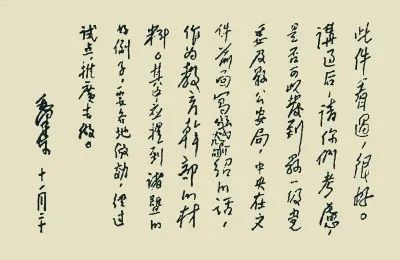 此件看過，很好。
講过后，請你们考慮，
是否可以發到縣一级党
委及縣公安局，中央在文
件前面寫幾句介紹的话，
作为教育幹部的材
料。其中应提到諸暨的
好例子，要各地仿効，經过
試点，推廣去做。
毛泽东
十一月二十